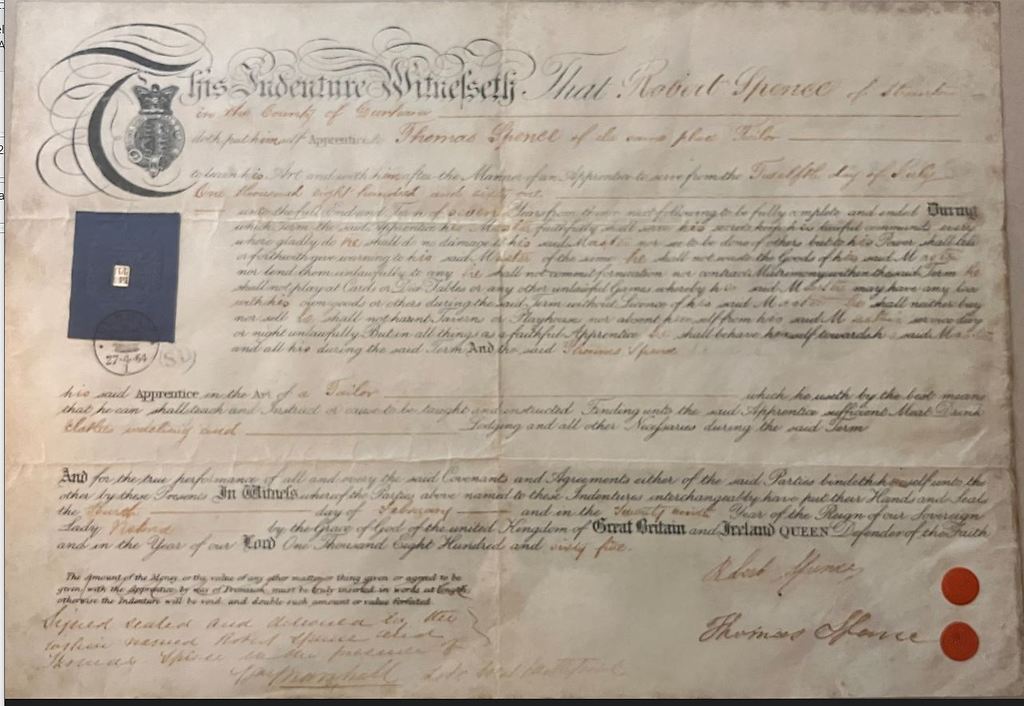 This Indenture Witnesseth That Robert Spence of
in the County of Durham
doth put himself Apprentice to Thomas Spence of the same place Tailor
to learn his Art and with him after the Manner of an Apprentice to serve from the Twelfth day of July
One thousand eight hundred and sixty
unto the full End and Term of seven Years from thence next following to be fully complete and ended During
which Term the said Apprentice his Master faithfully shall serve his secrets keep his lawful commands every
where gladly do he shall do no damage to his said Master nor see to be done of others but to his Power shall tell
or forthwith give warning to his said Master of the same he shall not waste the Goods of his said Master
nor lend them unlawfully to any he shall not commit fornication nor contract Matrimony within the said Term he
shall not play at Cards or Dice Tables or any other unlawful Games whereby his said Master may have any loss
with his own goods or others during the said Term without Licence of his said Master he shall neither buy
nor sell he shall not haunt Taverns or Playhouses nor absent himself from his said Master's service day
or night unlawfully But in all things as a faithful Apprentice he shall behave himself towards his said Master
and all his during the said Term And the said Thomas Spence
27·4·64
his said Apprentice in the Art of a Tailor which he useth by the best means
that he can shall teach and Instruct or cause to be taught and instructed Finding unto the said Apprentice sufficient Meat Drink
Clothes washing and Lodging and all other Necessaries during the said Term
And for the true performance of all and every the said Covenants and Agreements either of the said Parties bindeth himself unto the
other by these Presents In Witness whereof the Parties above named to these Indentures interchangeably have put their Hands and Seals
the fourth day of February and in the Twenty Year of the Reign of our Sovereign
Lady Victoria by the Grace of God of the united Kingdom of Great Britain and Ireland QUEEN Defender of the Faith
and in the Year of our Lord One Thousand Eight Hundred and sixty five.
The Amount of the Money, or the value of any other matter or thing given or agreed to be
given with the Apprentice by way of Premium, must be truly inserted in words at length,
otherwise the Indenture will be void and double such amount or value forfeited
Robert Spence
Signed sealed and delivered by the
within named Robert Spence and
Thomas Spence in the presence of
Thomas Spence
Wm Marshall